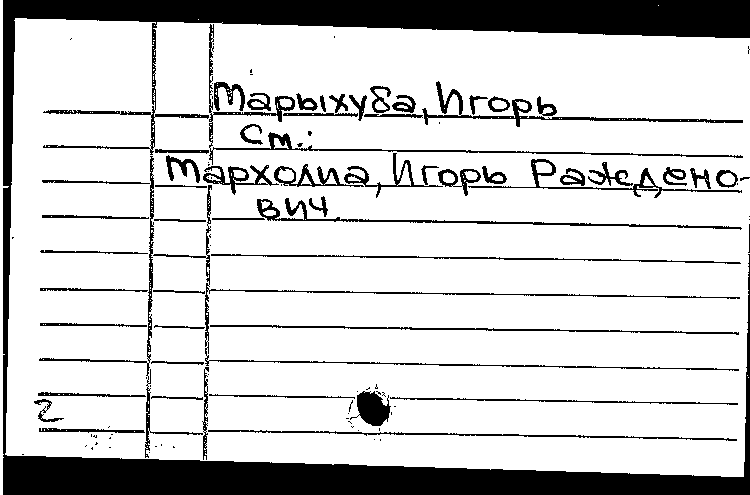 Марыхуба, Игорь
См.:
Мархолиа, Игорь Раждено-
вич.
2